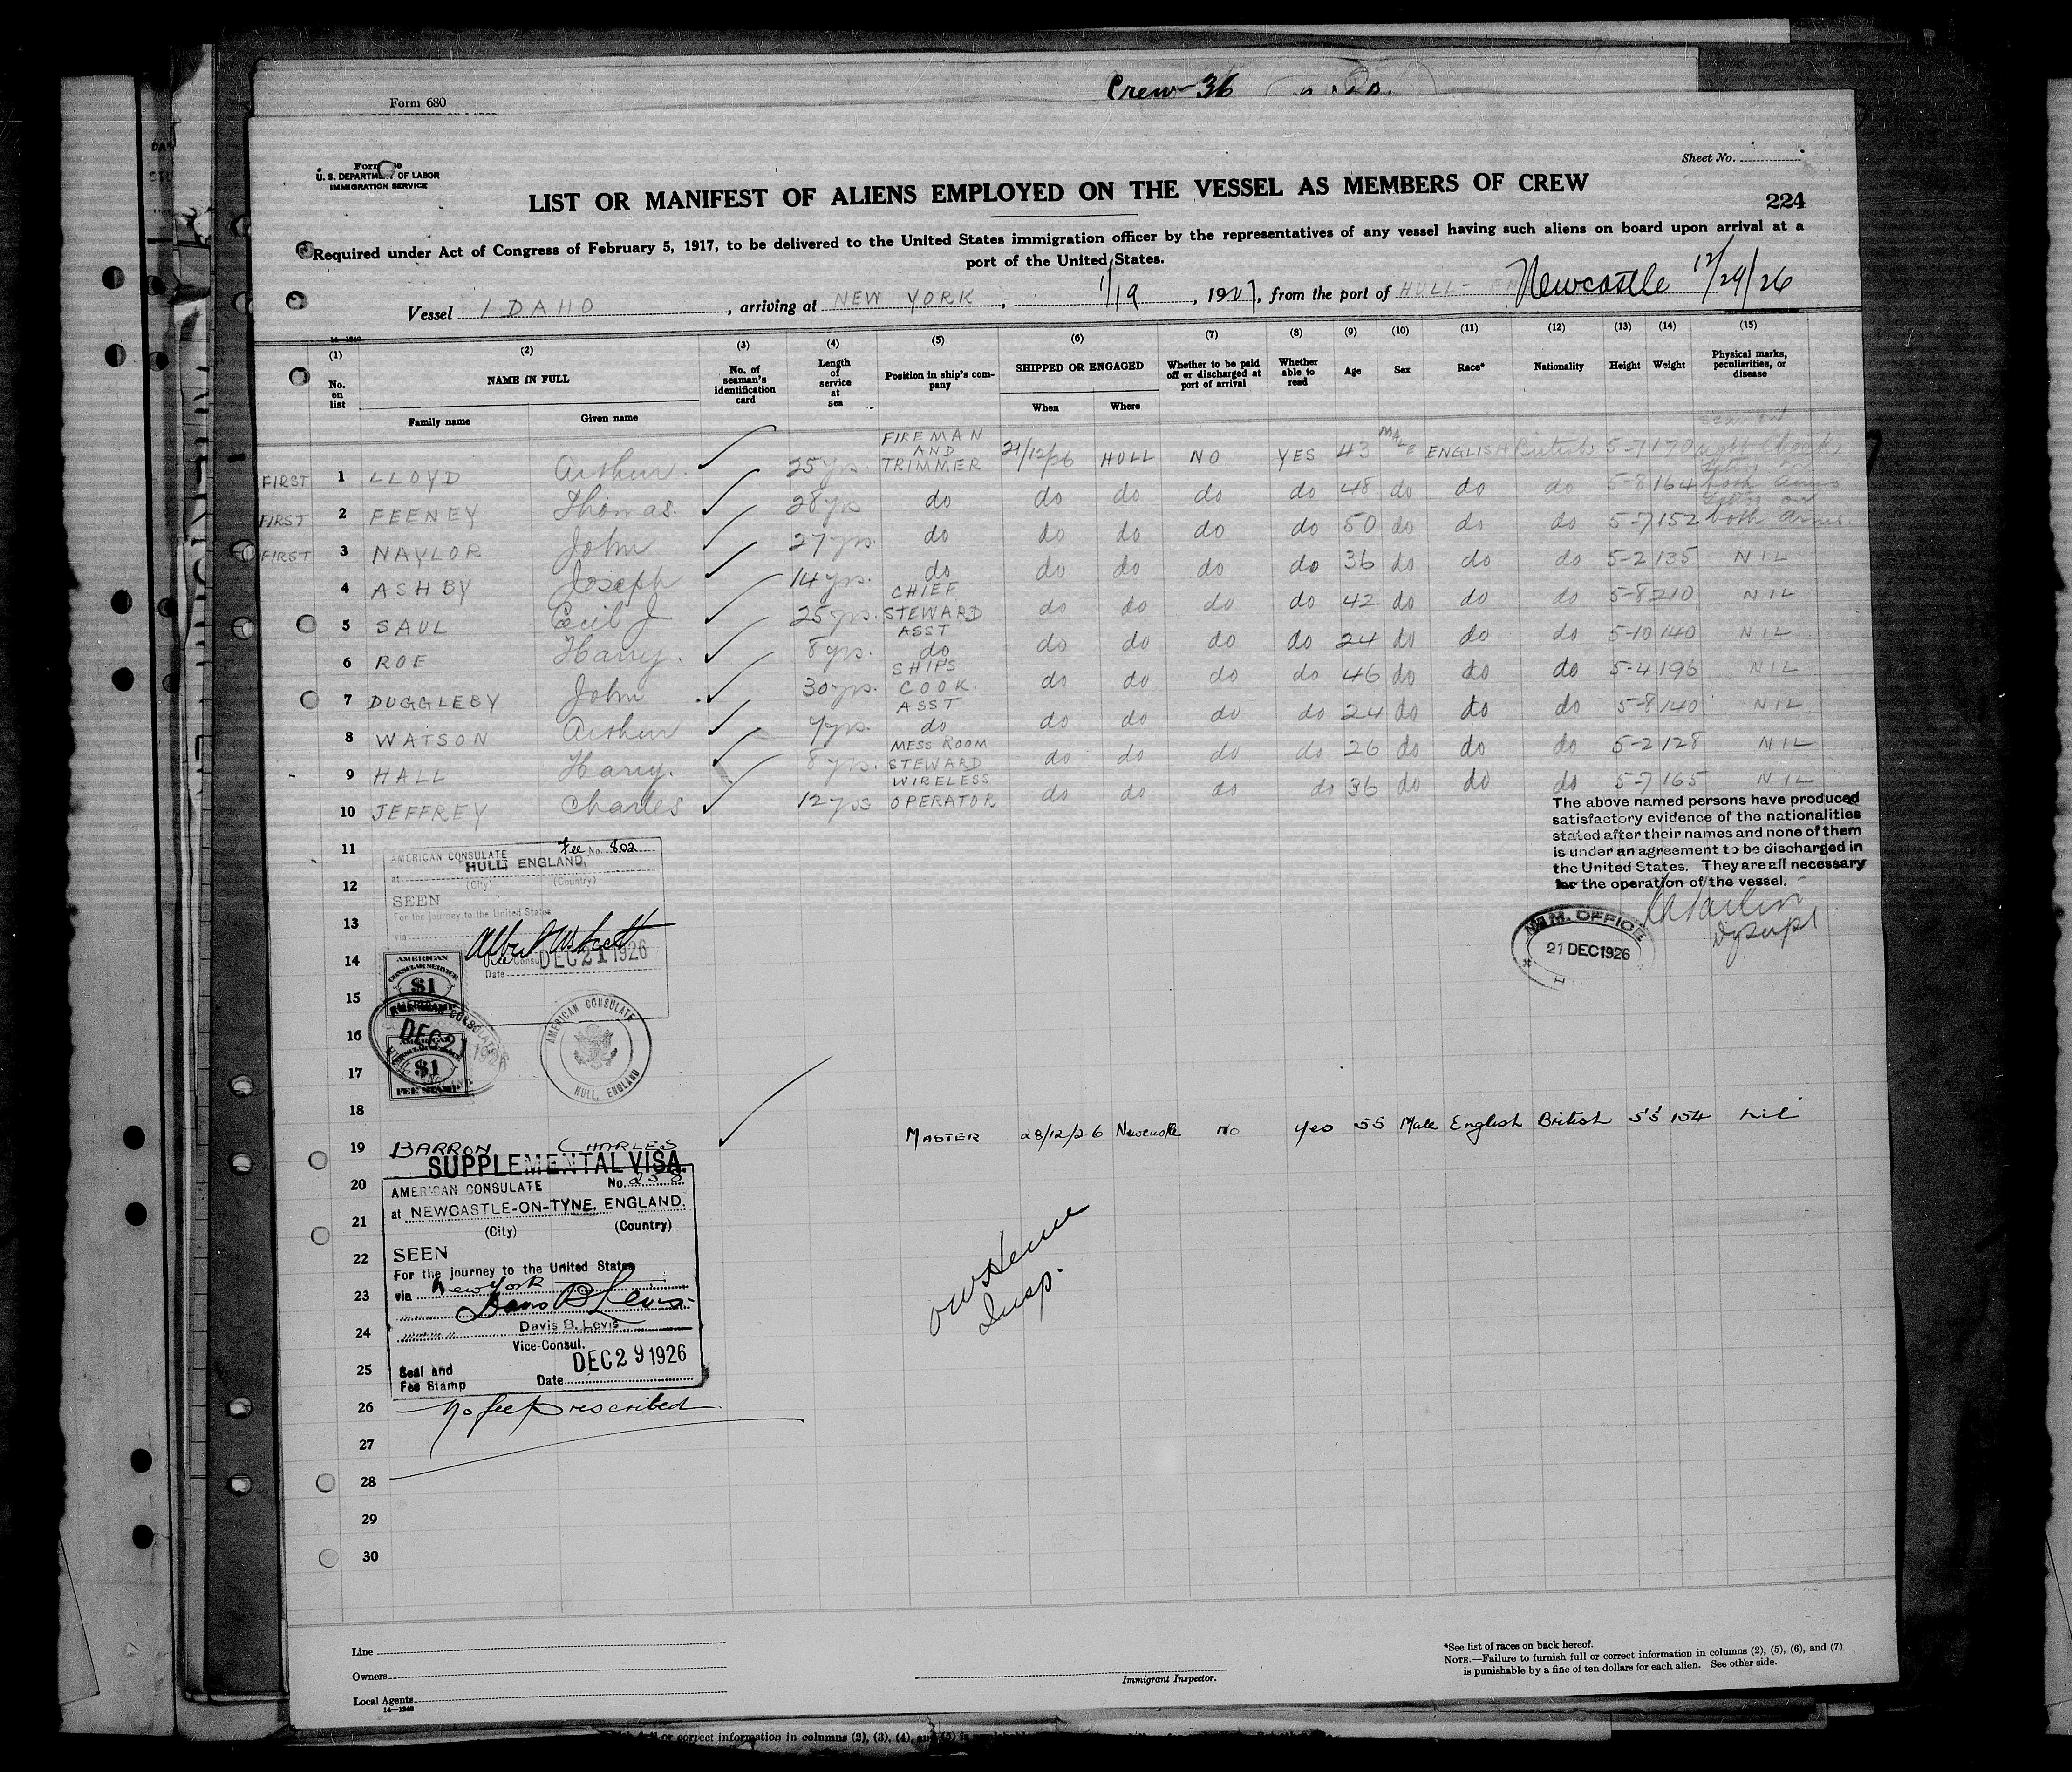 Crew 36
Form 680
Sheet No.
U. S. DEPARTMENT OF LABOR
IMMIGRATION SERVICE
LIST OR MANIFEST OF ALIENS EMPLOYED ON THE VESSEL AS MEMBERS OF CREW
224
Required under Act of Congress of February 5, 1917, to be delivered to the United States immigration officer by the representatives of any vessel having such aliens on board upon arrival at a
port of the United States.
Vessel IDAHO, arriving at NEW YORK, 1/19, 1927, from the port of HULL- Newcastle 12/29/26
14—1240
(1) (2) (3) (4) (5) (6) (7) (8) (9) (10) (11) (12) (13) (14) (15)
No. on list NAME IN FULL No. of seaman's identification card Length of service at sea Position in ship's company SHIPPED OR ENGAGED Whether to be paid off or discharged at port of arrival Whether able to read Age Sex Race* Nationality Height Weight Physical marks, peculiarities, or disease
Family name Given name When Where
FIRST 1 LLOYD Arthur 25 yrs. FIREMAN AND TRIMMER 21/12/26 HULL NO YES 43 MALE ENGLISH British 5-7 170 scar on right Cheek
FIRST 2 FEENEY Thomas. 28 yrs do do do do do 48 do do do 5-8 164 both arms
FIRST 3 NAYLOR John 27 yrs. do do do do do 50 do do do 5-7 152 both arms.
4 ASHBY Joseph 14 yrs. do do do do do 36 do do do 5-2 135 NIL
5 SAUL Cecil J 25 yrs. CHIEF STEWARD do do do do 42 do do do 5-8 210 NIL
6 ROE Harry. 8 yrs. ASST do do do do do 24 do do do 5-10 140 NIL
7 DUGGLEBY John 30 yrs. SHIPS COOK do do do do 46 do do do 5-4 196 NIL
8 WATSON Arthur 4 yrs. ASST do do do do do 24 do do do 5-8 140 NIL
9 HALL Harry. 8 yrs. MESS ROOM STEWARD do do do do 26 do do do 5-2 128 NIL
10 JEFFREY Charles 12 yrs WIRELESS OPERATOR do do do do 36 do do do 5-7 165 NIL
The above named persons have produced
satisfactory evidence of the nationalities
stated after their names and none of them
is under an agreement to be discharged in
the United States. They are all necessary
for the operation of the vessel.
IMM. OFFICE
21 DEC 1926
11
12
13
14
15
16
17
18
Fee No. 802
AMERICAN CONSULATE
at HULL, ENGLAND
(City) (Country)
SEEN
For the journey to the United States
via
Date DEC 21 1926
AMERICAN
CONSULAR SERVICE
$1
AMERICAN CONSULATE
DEC 21 1926
HULL, ENGLAND
$1
FEE STAMP
AMERICAN CONSULATE
HULL, ENGLAND
19 BARRON CHARLES MASTER 28/12/26 Newcastle no yes 55 Male English British 5'5" 154 nil
20
21
22
23
24
25
26
27
28
29
30
SUPPLEMENTAL VISA.
AMERICAN CONSULATE No. 258
at NEWCASTLE-ON-TYNE, ENGLAND.
(City) (Country)
SEEN
For the journey to the United States
via New York
Davis B Levis
Davis B. Levis
Vice-Consul.
Seal and
Fee Stamp
Date DEC 29 1926
No fee prescribed
Insp.
Line
Owners
Local Agents
14—1240
Immigrant Inspector.
*See list of races on back hereof.
NOTE.—Failure to furnish full or correct information in columns (2), (5), (6), and (7)
is punishable by a fine of ten dollars for each alien. See other side.
or correct information in columns (2), (3), (4), and (5)